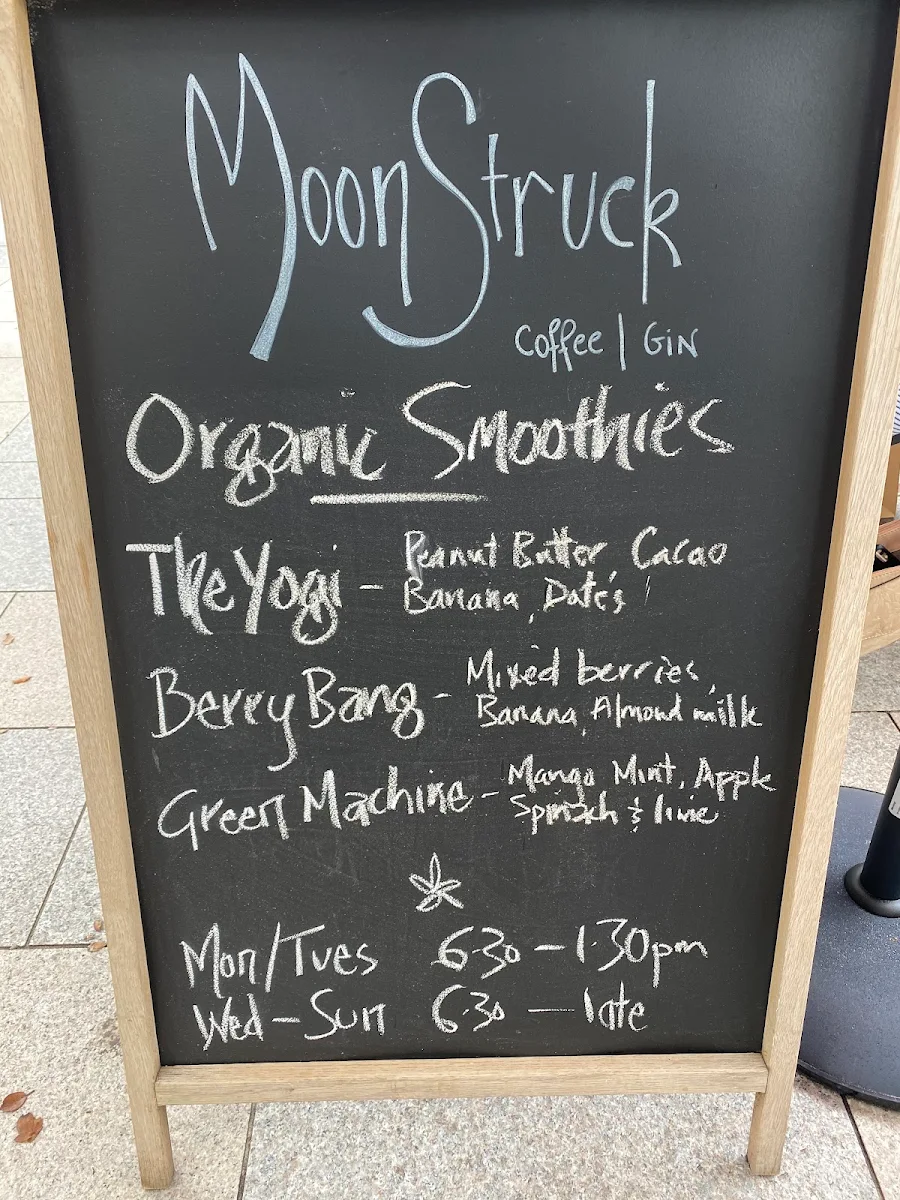 MoonStruck
Coffee | GIN
Organic Smoothies
The Yogi - Peanut Butter, Cacao
Banana, Dates
Berry Bang - Mixed berries,
Banana, Almond milk
Green Machine - Mango Mint, Apple
Spinach & lime
Mon/Tues 6.30 - 1.30pm
Wed - Sun 6.30 - late